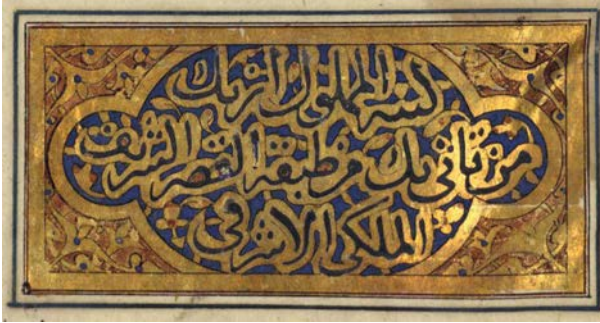 كتبه المملوك ازبك
من تاني بك من طبقة القصر الشريف
الملكي الاشرفي